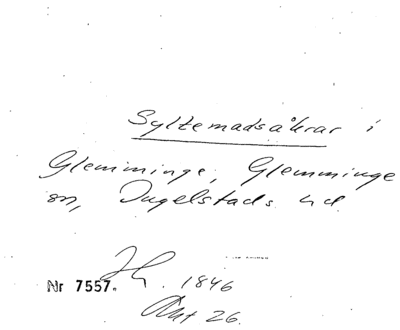 Syltemadsåkrar i
Glemminge, Glemminge
sn, Ingelstads hd
1846
Nr 7557.
26